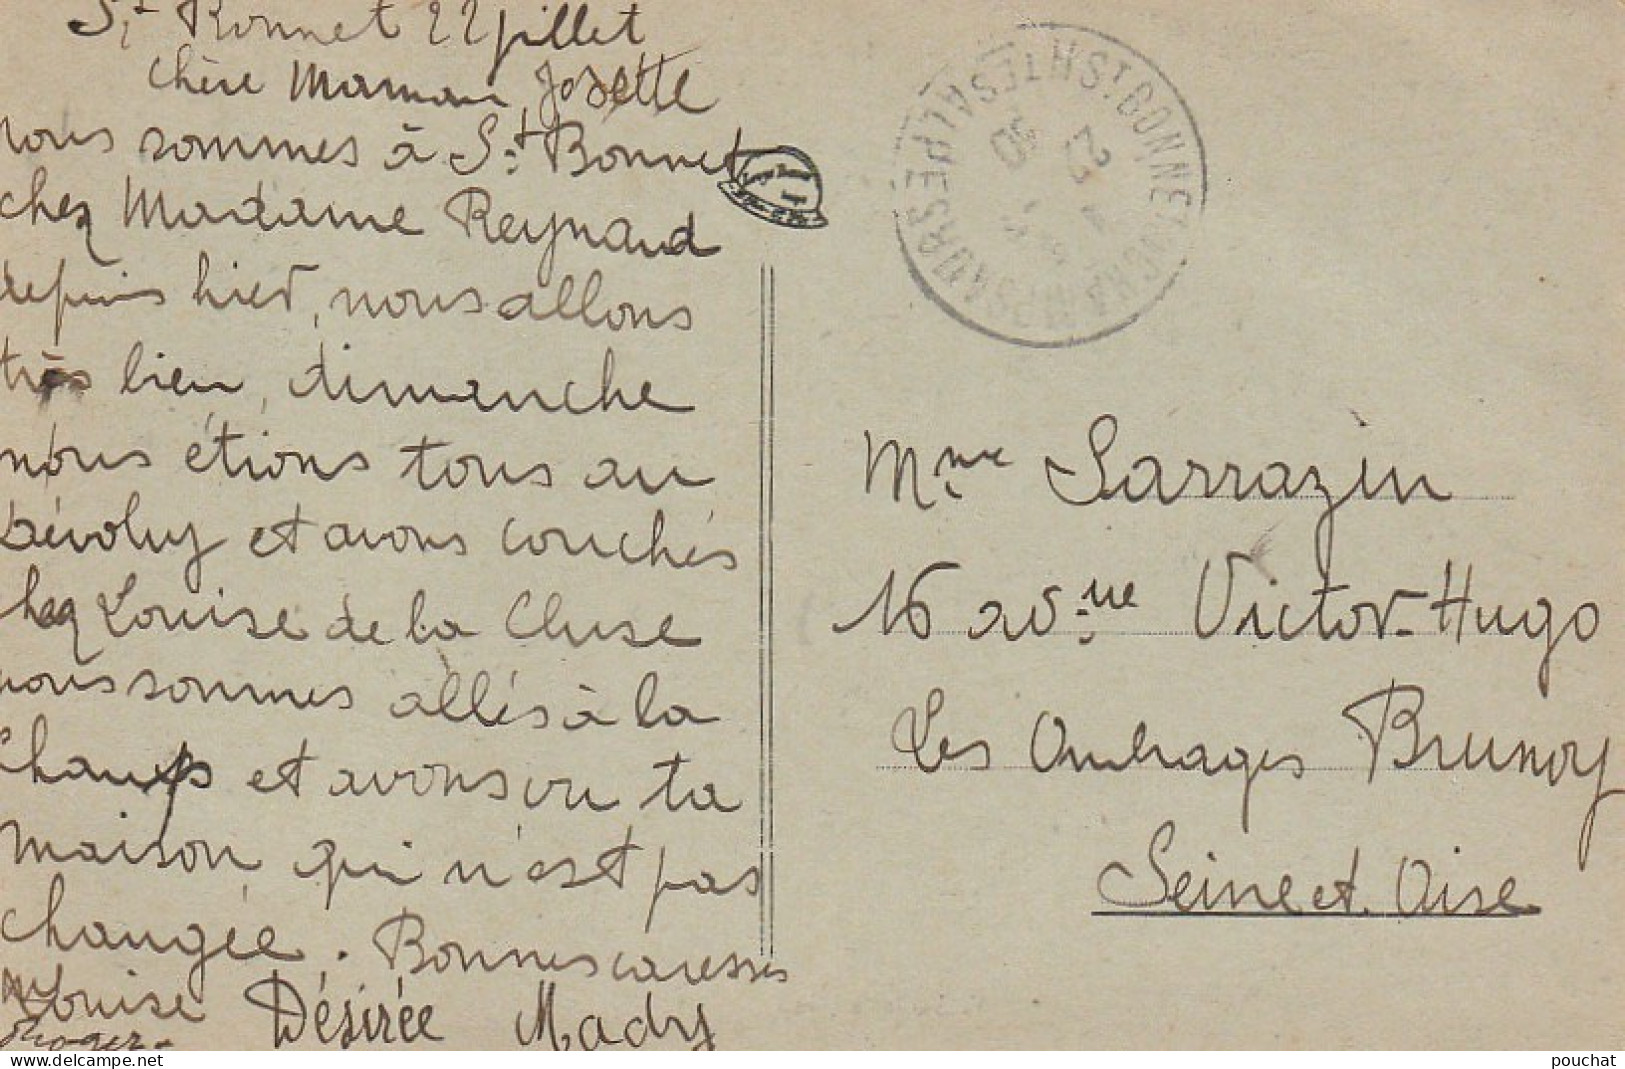 St Bonnet 22 juillet
chère Maman, Josette
nous sommes à St Bonnet
chez Madame Reynaud
depuis hier, nous allons
très bien, dimanche
nous étions tous au
Dévoluy et avons couchés
chez Louise de la Cluse
nous sommes allés à la
Champs et avons vu ta
maison qui n'est pas
changée. Bonnes caresses
Louise Désirée Mady
Roger
ST BONNET-EN-CHAMPSAUR HTES ALPES
22
30
Mme Sarrazin
16 avenue Victor-Hugo
Les Ombrages Brunoy
Seine et Oise
pouchat